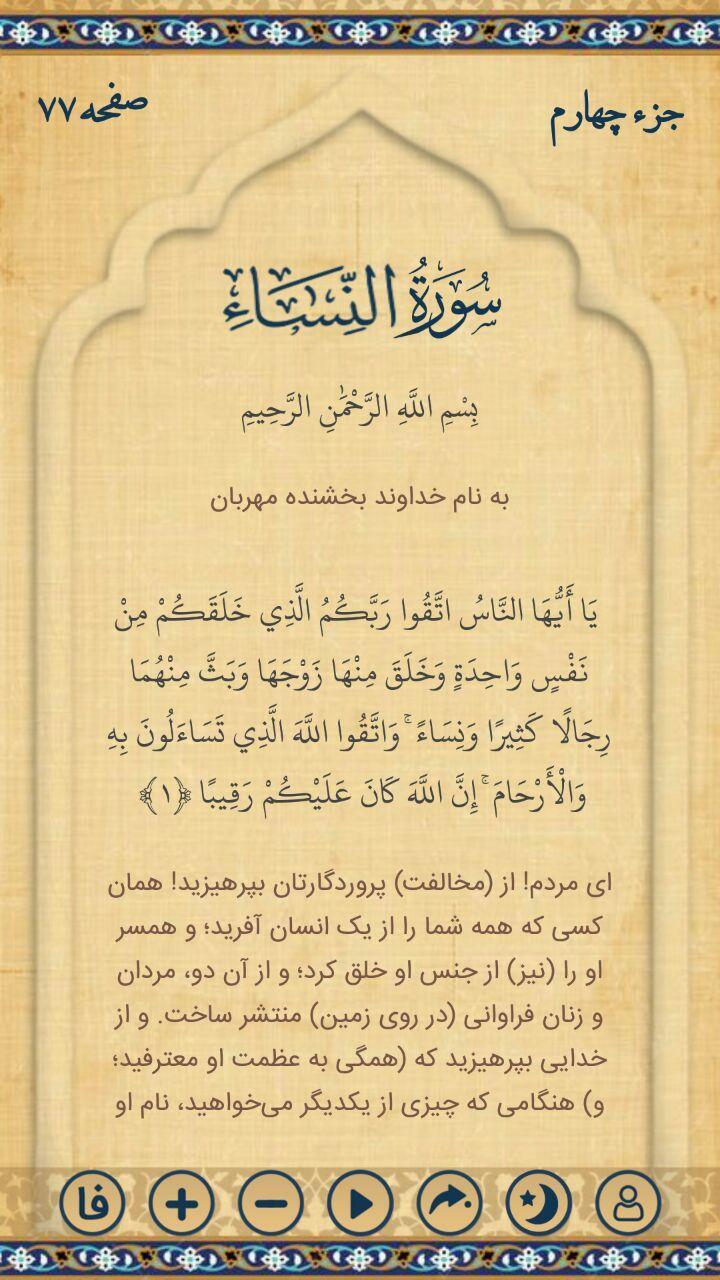 جزء چهارم
صفحه ۷۷
سُورَةُ النِّسَاءِ
بِسْمِ اللَّهِ الرَّحْمَٰنِ الرَّحِيمِ
به نام خداوند بخشنده مهربان
يَا أَيُّهَا النَّاسُ اتَّقُوا رَبَّكُمُ الَّذِي خَلَقَكُمْ مِنْ
نَفْسٍ وَاحِدَةٍ وَخَلَقَ مِنْهَا زَوْجَهَا وَبَثَّ مِنْهُمَا
رِجَالًا كَثِيرًا وَنِسَاءً ۚ وَاتَّقُوا اللَّهَ الَّذِي تَسَاءَلُونَ بِهِ
وَالْأَرْحَامَ ۚ إِنَّ اللَّهَ كَانَ عَلَيْكُمْ رَقِيبًا ﴿۱﴾
ای مردم! از (مخالفت) پروردگارتان بپرهیزید! همان
کسی که همه شما را از یک انسان آفرید؛ و همسر
او را (نیز) از جنس او خلق کرد؛ و از آن دو، مردان
و زنان فراوانی (در روی زمین) منتشر ساخت. و از
خدایی بپرهیزید که (همگی به عظمت او معترفید؛
و) هنگامی که چیزی از یکدیگر می‌خواهید، نام او
فا